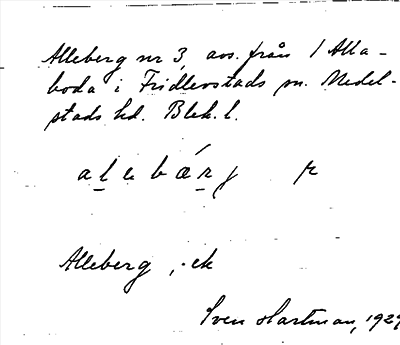 Alleberg nr 3, avs. från 1 Alla-
boda i Fridlevstads sn. Medel-
stads hd. Blek. l.
alebærj
Alleberg, -ek
Sven Hartman, 1929